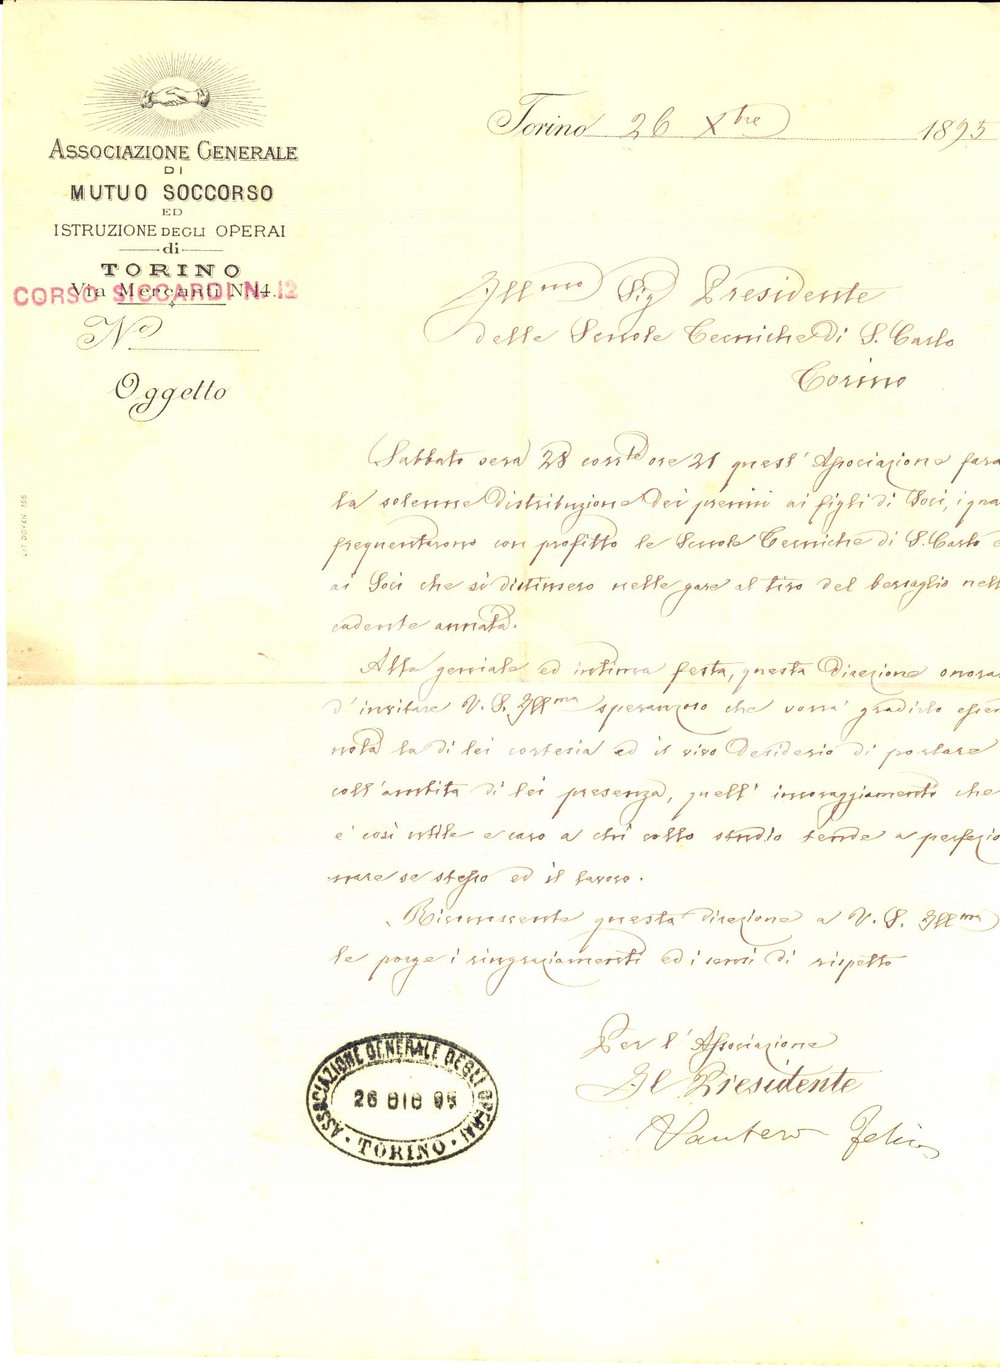 ASSOCIAZIONE GENERALE
DI
MUTUO SOCCORSO
ED
ISTRUZIONE DEGLI OPERAI
di
TORINO
Via Mercanti N. 14.
CORSO SICCARDI N. 12
No
Oggetto
Torino 26 Xbre 1895
Illmo Sig Presidente
delle Scuole Tecniche di S. Carlo
Torino
Sabbato sera 28 corrte ore 21 quest' Associazione fara
la solenne distribuzione dei premii ai figli di Soci, i qua
frequentarono con profitto le Scuole Tecniche di S. Carlo e
ai Soci che si distinsero nelle gare al tiro del bersaglio nell
cadente annata.
Alla geniale ed intima festa, questa Direzione onorar
d'invitare V. S. Illma speranzoso che vorrà gradirlo essen
nota la di lei cortesia ed il vivo desiderio di portare
coll'ambita di lei presenza, quell' incoraggiamento che
e' così utile e caro a chi collo studio tende a perfezio
nare se stesso ed il lavoro.
Riconoscente questa direzione a V. S. Illma
le porge i ringraziamenti ed i sensi di rispetto
Per l'Associazione
Il Presidente
Felice
ASSOCIAZIONE GENERALE DEGLI OPERAI
26 DIC 95
TORINO